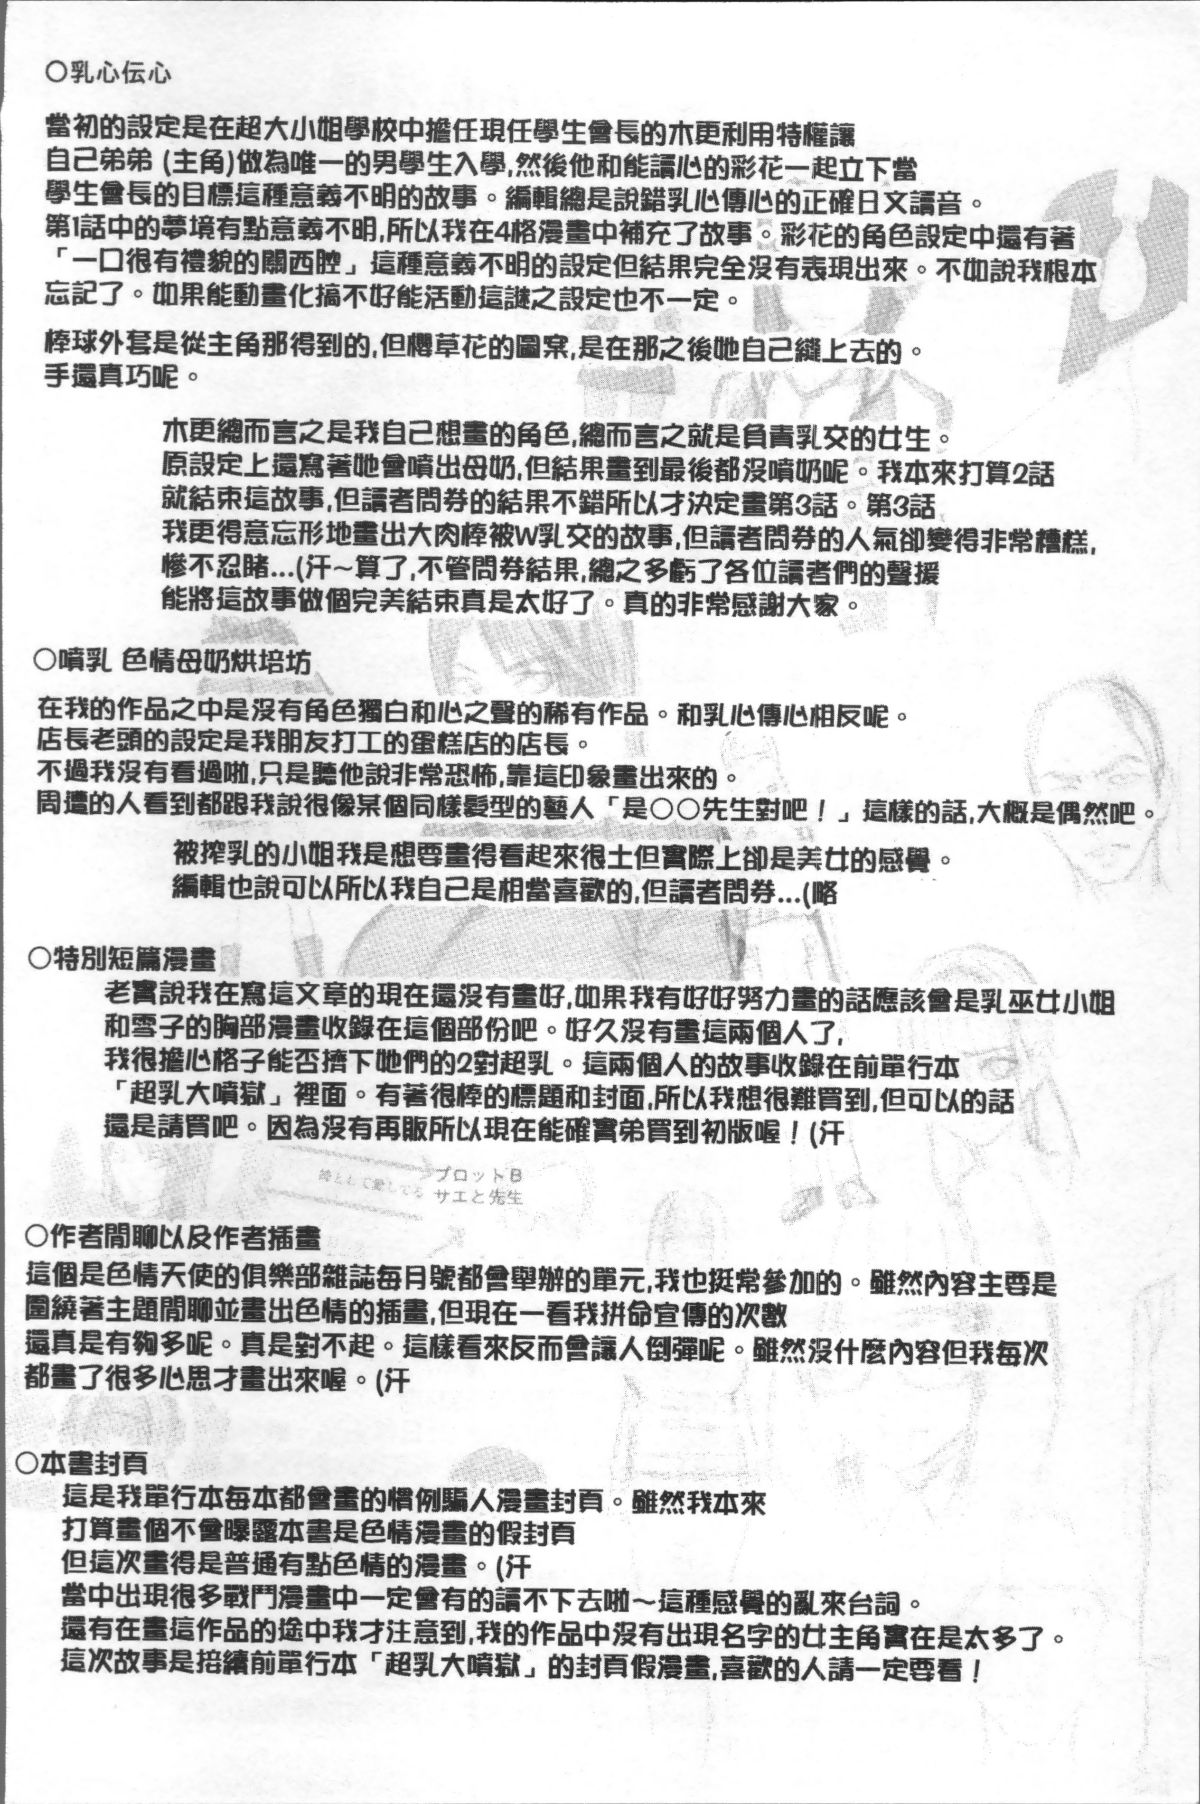 ○乳心伝心
當初的設定是在超大小姐學校中擔任現任學生會長的木更利用特權讓
自己弟弟 (主角)做為唯一的男學生入學,然後他和能讀心的彩花一起立下當
學生會長的目標這種意義不明的故事。編輯總是說錯乳心傳心的正確日文讀音。
第1話中的夢境有點意義不明,所以我在4格漫畫中補充了故事。彩花的角色設定中還有著
「一口很有禮貌的關西腔」這種意義不明的設定但結果完全沒有表現出來。不如說我根本
忘記了。如果能動畫化搞不好能活動這謎之設定也不一定。
棒球外套是從主角那得到的,但櫻草花的圖案,是在那之後她自己縫上去的。
手還真巧呢。
木更總而言之是我自己想畫的角色,總而言之就是負責乳交的女生。
原設定上還寫著她會噴出母奶,但結果畫到最後都沒噴奶呢。我本來打算2話
就結束這故事,但讀者問券的結果不錯所以才決定畫第3話。第3話
我更得意忘形地畫出大肉棒被W乳交的故事,但讀者問券的人氣卻變得非常糟糕,
慘不忍睹...(汗～算了,不管問券結果,總之多虧了各位讀者們的聲援
能將這故事做個完美結束真是太好了。真的非常感謝大家。
○噴乳 色情母奶烘培坊
在我的作品之中是沒有角色獨白和心之聲的稀有作品。和乳心傳心相反呢。
店長老頭的設定是我朋友打工的蛋糕店的店長。
不過我沒有看過啦,只是聽他說非常恐怖,靠這印象畫出來的。
周遭的人看到都跟我說很像某個同樣髮型的藝人「是○○先生對吧！」這樣的話,大概是偶然吧。
被搾乳的小姐我是想要畫得看起來很土但實際上卻是美女的感覺。
編輯也說可以所以我自己是相當喜歡的,但讀者問券...(略
○特別短篇漫畫
老實說我在寫這文章的現在還沒有畫好,如果我有好好努力畫的話應該會是乳巫女小姐
和雪子的胸部漫畫收錄在這個部份吧。好久沒有畫這兩個人了,
我很擔心格子能否擠下她們的2對超乳。這兩個人的故事收錄在前單行本
「超乳大噴獄」裡面。有著很棒的標題和封面,所以我想很難買到,但可以的話
還是請買吧。因為沒有再販所以現在能確實弟買到初版喔！(汗
姉として愛してる
プロットB
サエと先生
○作者閒聊以及作者插畫
這個是色情天使的俱樂部雜誌每月號都會舉辦的單元,我也挺常參加的。雖然內容主要是
圍繞著主題閒聊並畫出色情的插畫,但現在一看我拼命宣傳的次數
還真是有夠多呢。真是對不起。這樣看來反而會讓人倒彈呢。雖然沒什麼內容但我每次
都畫了很多心思才畫出來喔。(汗
○本書封頁
這是我單行本每本都會畫的慣例騙人漫畫封頁。雖然我本來
打算畫個不會曝露本書是色情漫畫的假封頁
但這次畫得是普通有點色情的漫畫。(汗
當中出現很多戰鬥漫畫中一定會有的讀不下去啦～這種感覺的亂來台詞。
還有在畫這作品的途中我才注意到,我的作品中沒有出現名字的女主角實在是太多了。
這次故事是接續前單行本「超乳大噴獄」的封頁假漫畫,喜歡的人請一定要看！